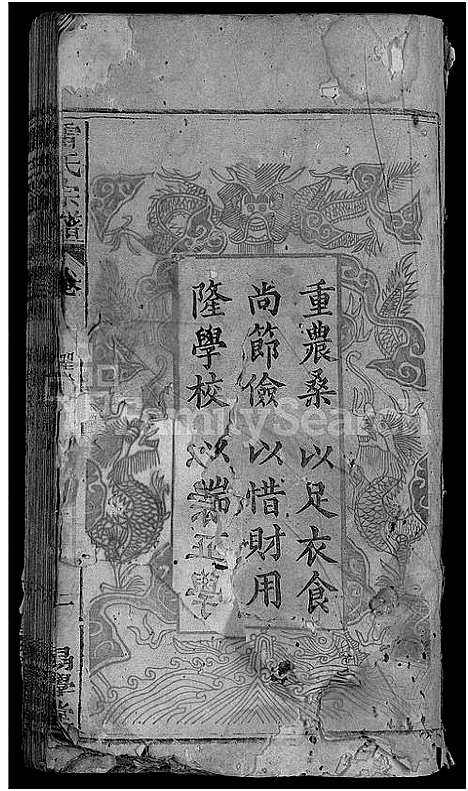 重農桑以足衣食
尚節儉以惜財用
隆學校以端
雷氏宗譜
卷
FamilySearch